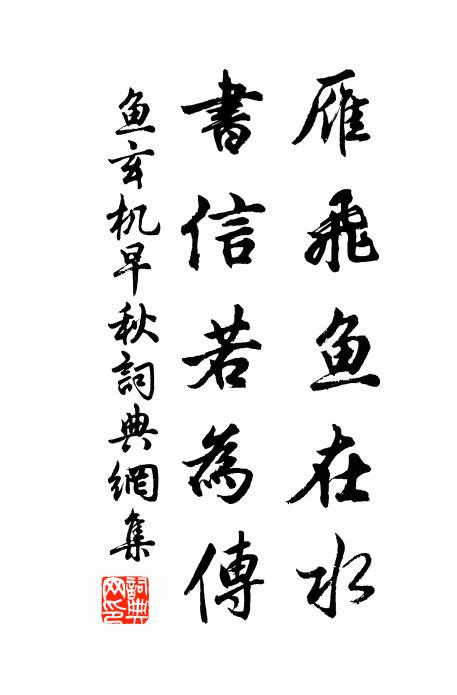 雁飛魚在水
書信若為傳
魚玄机早秋詞典網集
詞典网印